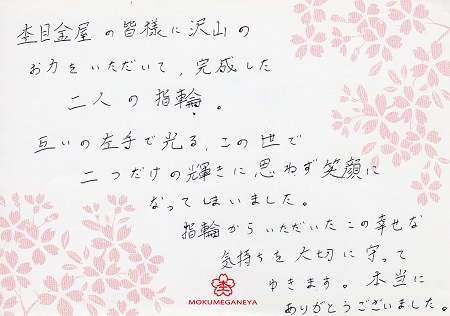 杢目金屋の皆様に沢山の
お力をいただいて、完成した
二人の指輪。
互いの左手で光る、この世で
二つだけの輝きに思わず笑顔に
なってしまいました。
指輪からいただいたこの幸せな
気持ちを大切に守って
ゆきます。本当に
ありがとうございました。
杢
MOKUMEGANEYA